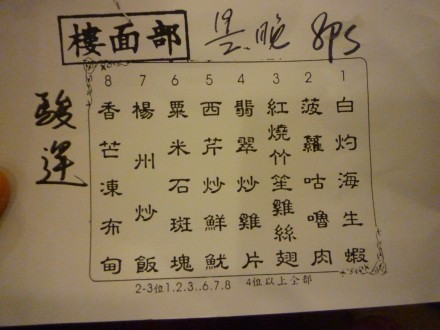 樓面部
晚 8ps
1 白灼海生蝦
2 菠蘿咕嚕肉
3 紅燒竹笙雞絲翅
4 翡翠炒雞片
5 西芹炒鮮魷
6 粟米石斑塊
7 楊州炒飯
8 香芒凍布甸
2-3位1.2.3..6.7.8 4位以上全部